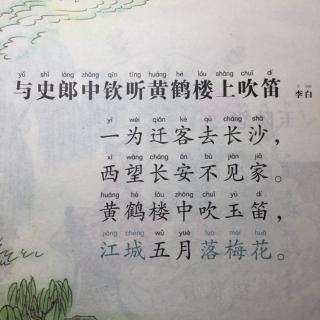 yǔ shǐ láng zhōng qīn tīng huáng hè lóu shàng chuī dí
与史郎中钦听黄鹤楼上吹笛 李白
yì wéi qiān kè qù cháng shā
一为迁客去长沙，
xī wàng cháng ān bù jiàn jiā
西望长安不见家。
huáng hè lóu zhōng chuī yù dí
黄鹤楼中吹玉笛，
jiāng chéng wǔ yuè luò méi huā
江城五月落梅花。